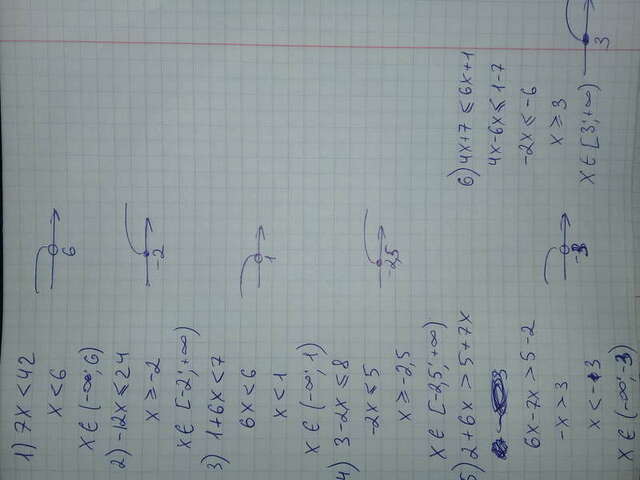 1) 7x < 42
x < 6
6
x ∈ (-∞; 6)
2) -12x ≤ 24
x ≥ -2
-2
x ∈ [-2; +∞)
3) 1+6x < 7
6x < 6
x < 1
1
x ∈ (-∞; 1)
4) 3-2x ≤ 8
-2x ≤ 5
x ≥ -2,5
-2,5
x ∈ [-2,5; +∞)
5) 2+6x > 5+7x
6x-7x > 5-2
-x > 3
x < -3
-3
x ∈ (-∞; -3)
6) 4x+7 ≤ 6x+1
4x-6x ≤ 1-7
-2x ≤ -6
x ≥ 3
x ∈ [3; +∞)
3